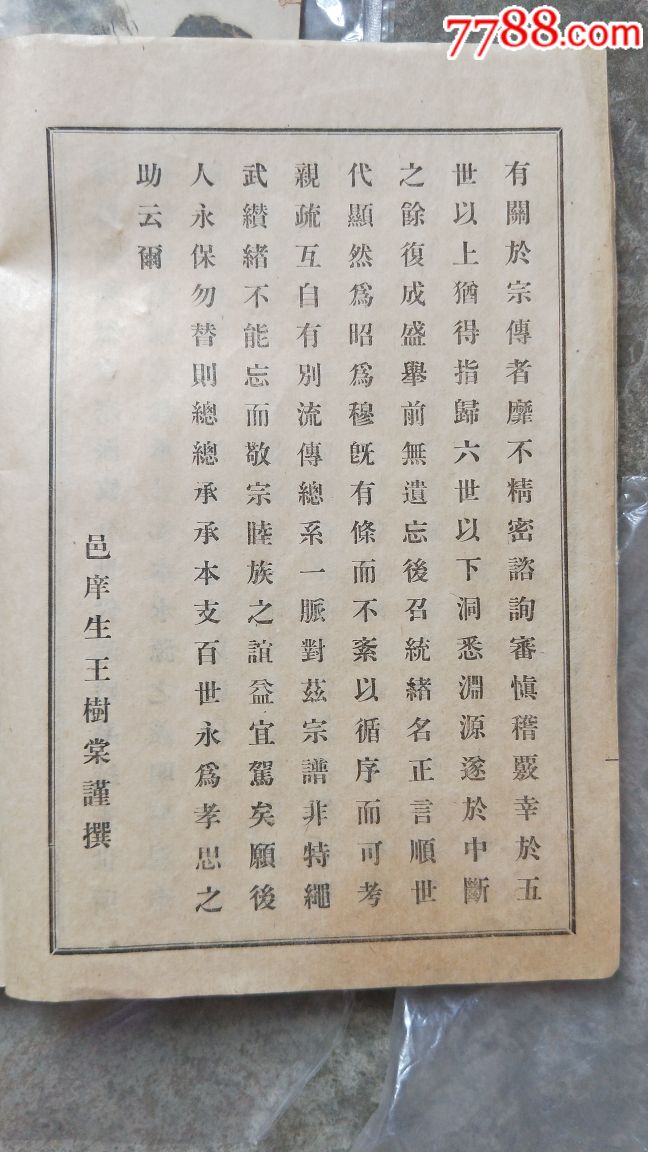 7788.com
有關於宗傳者靡不精密諮詢審慎稽覈幸於五
世以上猶得指歸六世以下洞悉淵源遂於中斷
之餘復成盛舉前無遺忘後召統緒名正言順世
代顯然為昭為穆旣有條而不紊以循序而可考
親疏互自有別流傳總系一脈對茲宗譜非特繩
武纘緒不能忘而敬宗睦族之誼益宜駕矣願後
人永保勿替則總總承承本支百世永為孝思之
助云爾
邑庠生王樹棠謹撰